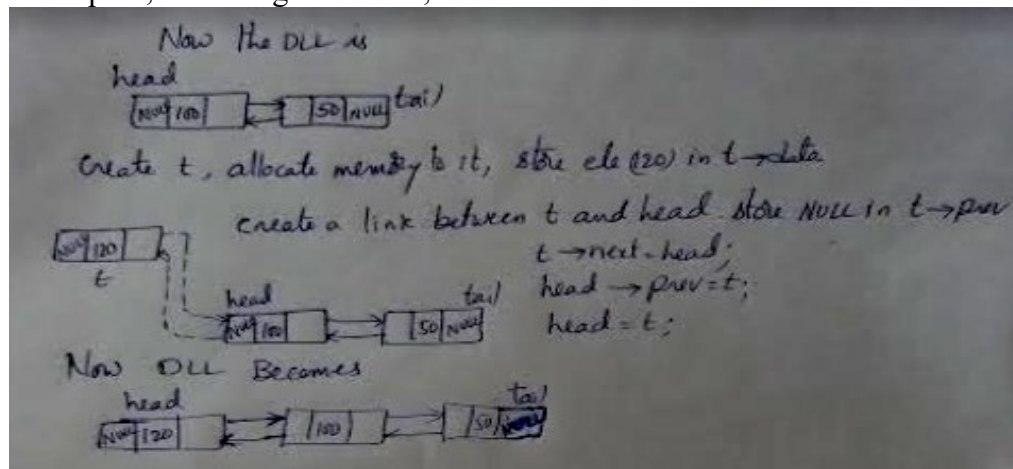 Now the DLL is
head
NULL 100 50 NULL tail
Create t, allocate memory to it, store ele (120) in t→data
create a link between t and head store NULL in t→prev
NULL 120
t
t→next=head;
head→prev=t;
head=t;
head tail
NULL 100 50 NULL
Now DLL Becomes
head tail
NULL 120 100 50